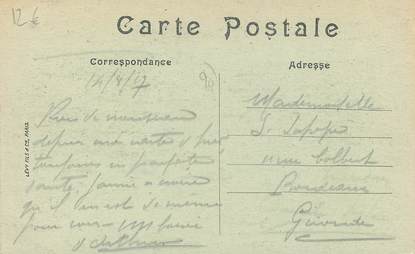 12 €
Carte Postale
Correspondance
Adresse
14/4/17
LÉVY FILS & CIE, PARIS
Rien de nouveau
depuis ma carte d'hier
toujours en parfaite
santé, j'aime à croire
qu'il en est de même
pour vous
Mademoiselle
rue Colbert
Bordeaux
Gironde